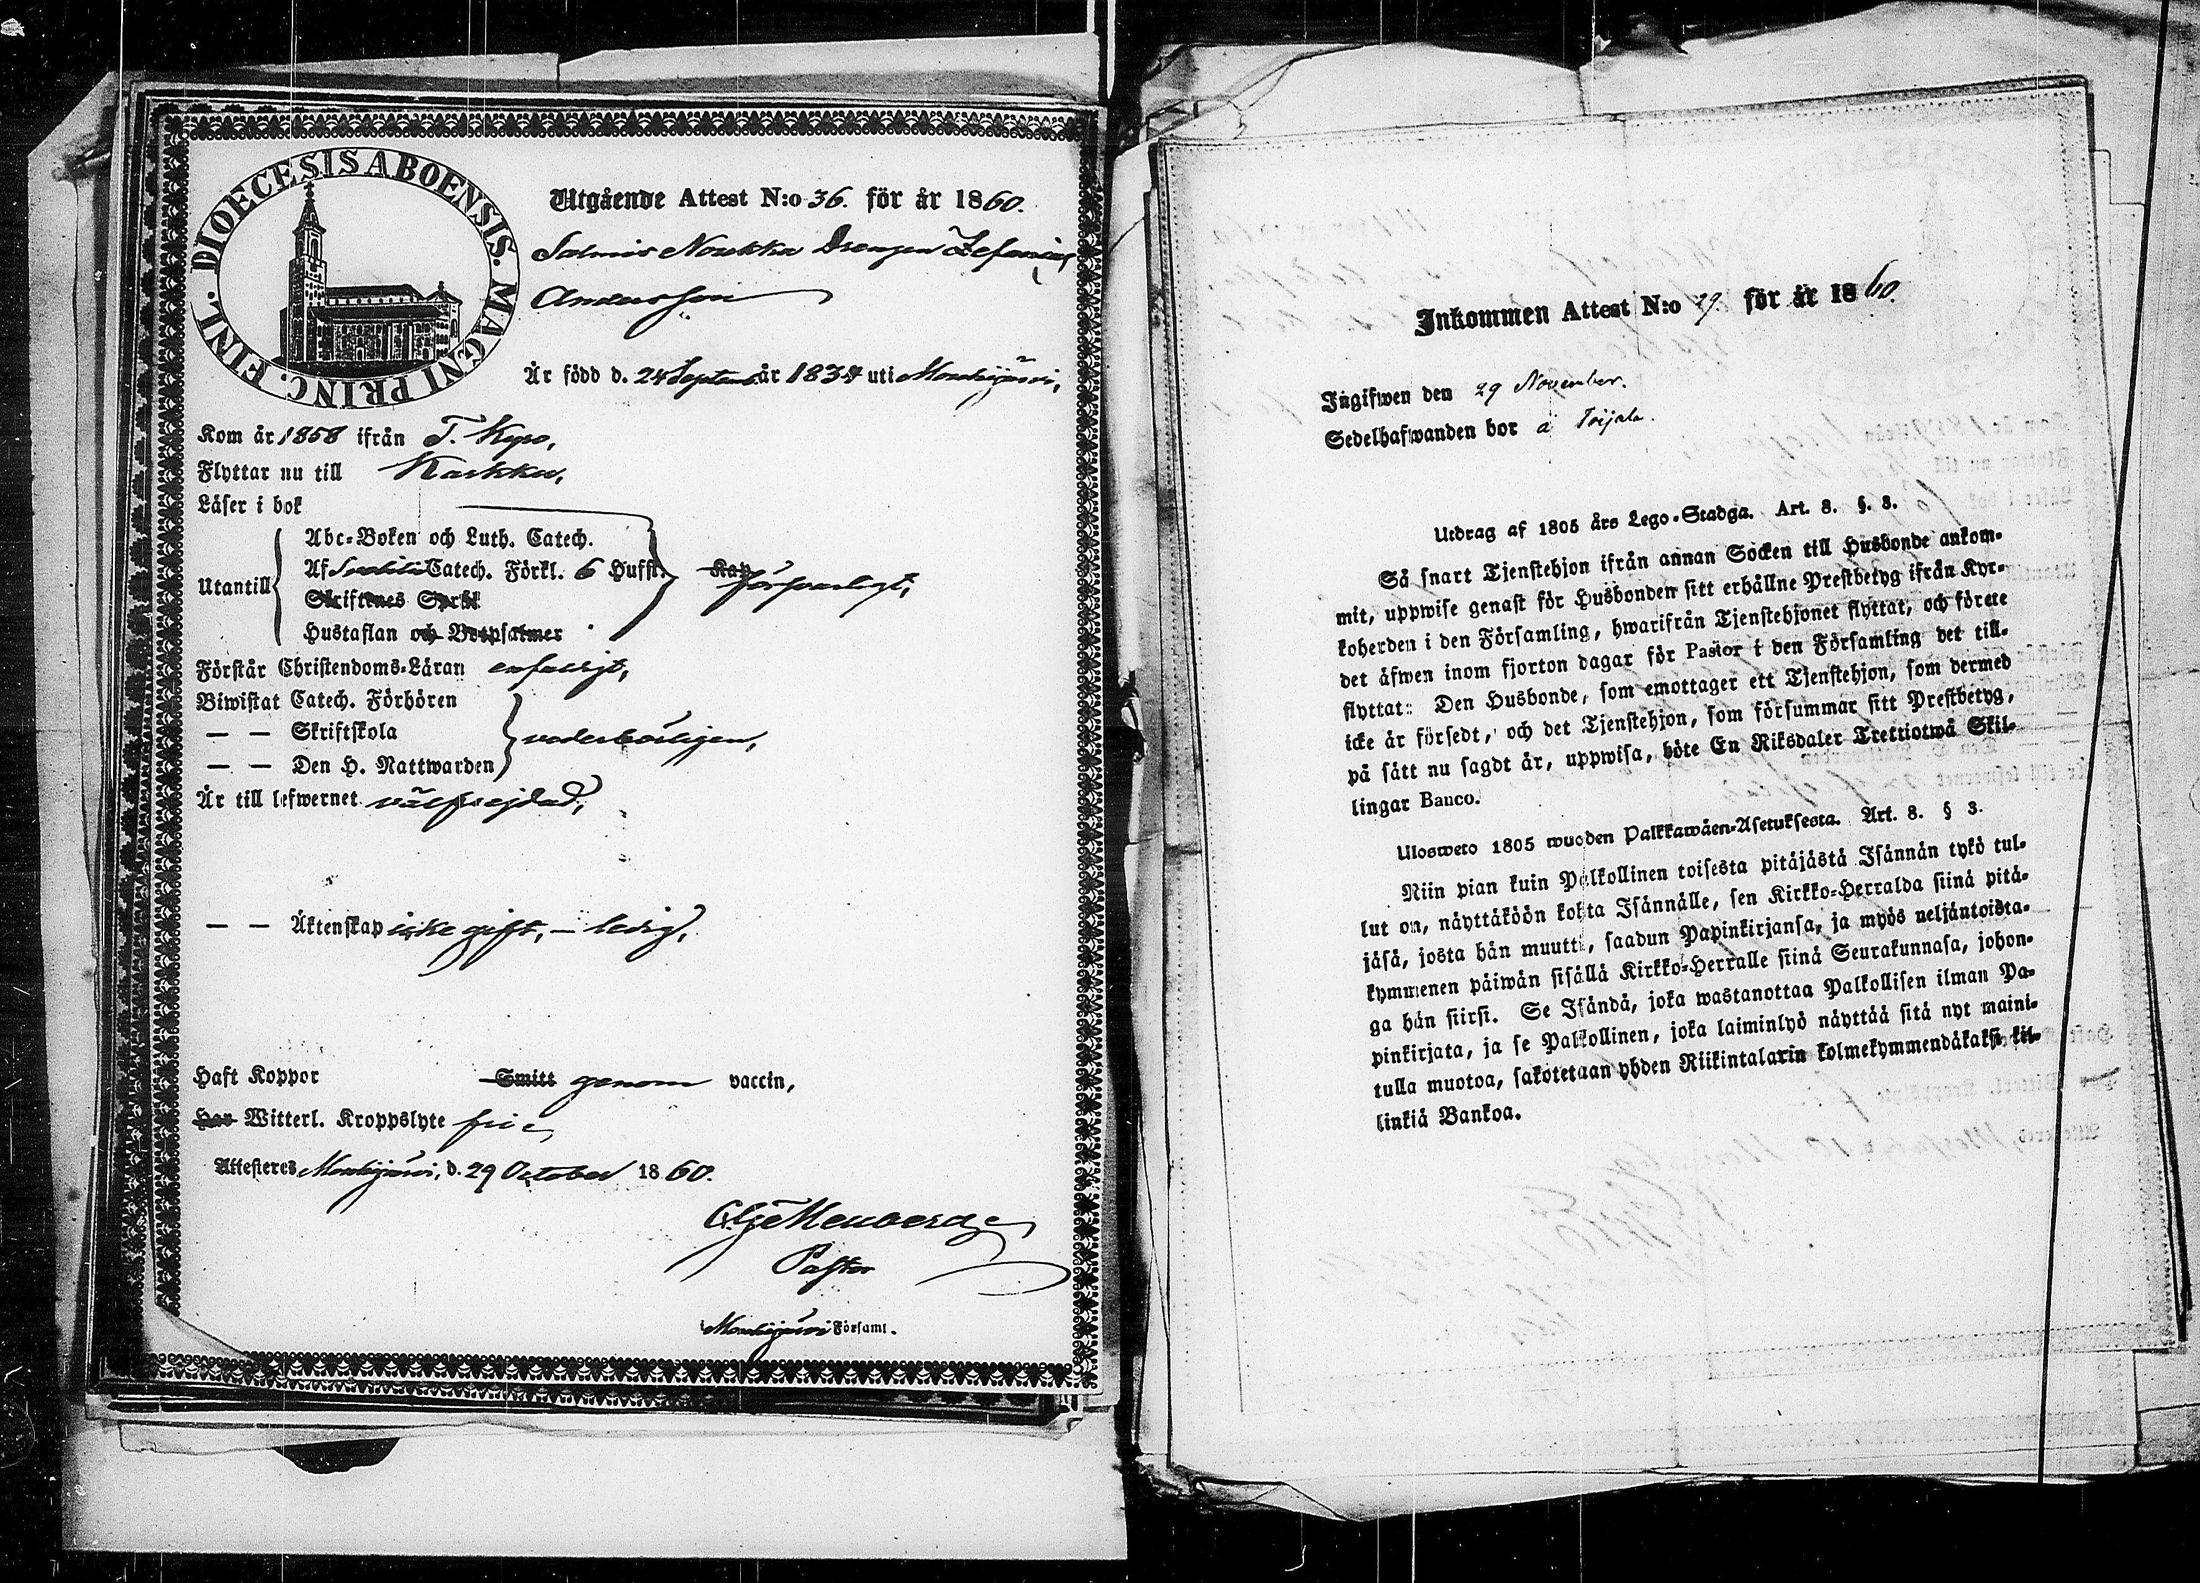 DIOECESIS ABOENSIS. MAGNI PRINC. FINL.
Utgående Attest N:o 36. för år 1860.
Salmis Noukka Drengen Zefanias
Andersson
Är född d. 24 Septemb. år 1834 uti Mouhijärvi,
Kom år 1858 ifrån T. Kyro,
Flyttar nu till Karkku,
Läser i bok
Utantill
Abc-Boken och Luth. Catech.
Af Svebilii Catech. Förkl. 6 Hufst.
Skriftenes Språk
Hustaflan och Botpsalmer
försvarligt,
Förstår Christendoms-Läran enfaldigt,
Biwistat Catech. Förhören
— — Skriftskola
— — Den H. Nattwarden
vederbörligen,
Är till lefwernet välfrejdad,
— — Äktenskap icke gift, – ledig,
Haft Koppor Smitt genom vaccin,
Har Witterl. Kroppslyte fri
Attesteres Mouhijärvi, d. 29 October 1860.
Pastor
Mouhijärvi Församl.
Inkommen Attest N:o 29. för år 1860.
Ingifwen den 29 November.
Sedelhafwanden bor å Toijala.
Utdrag af 1805 års Lego-Stadga. Art. 8. §. 3.
Så snart Tjenstehjon ifrån annan Socken till Husbonde ankom-
mit, uppwise genast för Husbonden sitt erhållne Prestbetyg ifrån Kyr-
koherden i den Församling, hwarifrån Tjenstehjonet flyttat, och förete
det äfwen inom fjorton dagar för Pastor i den Församling det till-
flyttat: Den Husbonde, som emottager ett Tjenstehjon, som dermed
icke är försedt, och det Tjenstehjon, som försummar sitt Prestbetyg,
på sätt nu sagdt är, uppwisa, böte En Riksdaler Trettiotwå Skil-
lingar Banco.
Ulosweto 1805 wuoden Palkkawäen-Asetuksesta. Art. 8. § 3.
Niin pian kuin Palkollinen toisesta pitäjästä Isännän tykö tul-
lut on, näyttäköön kohta Isännälle, sen Kirkko-Herralda siinä pitä-
jäsä, josta hän muutti, saadun Papinkirjansa, ja myös neljäntoista-
kymmenen päiwän sisällä Kirkko-Herralle siinä Seurakunnasa, johon-
ga hän siirsi. Se Isändä, joka wastanottaa Palkollisen ilman Pa-
pinkirjata, ja se Palkollinen, joka laiminlyö näyttää sitä nyt maini-
tulla muotoa, sakotetaan yhden Riikintalarin kolmekymmendäkaksi kil-
linkiä Bankoa.